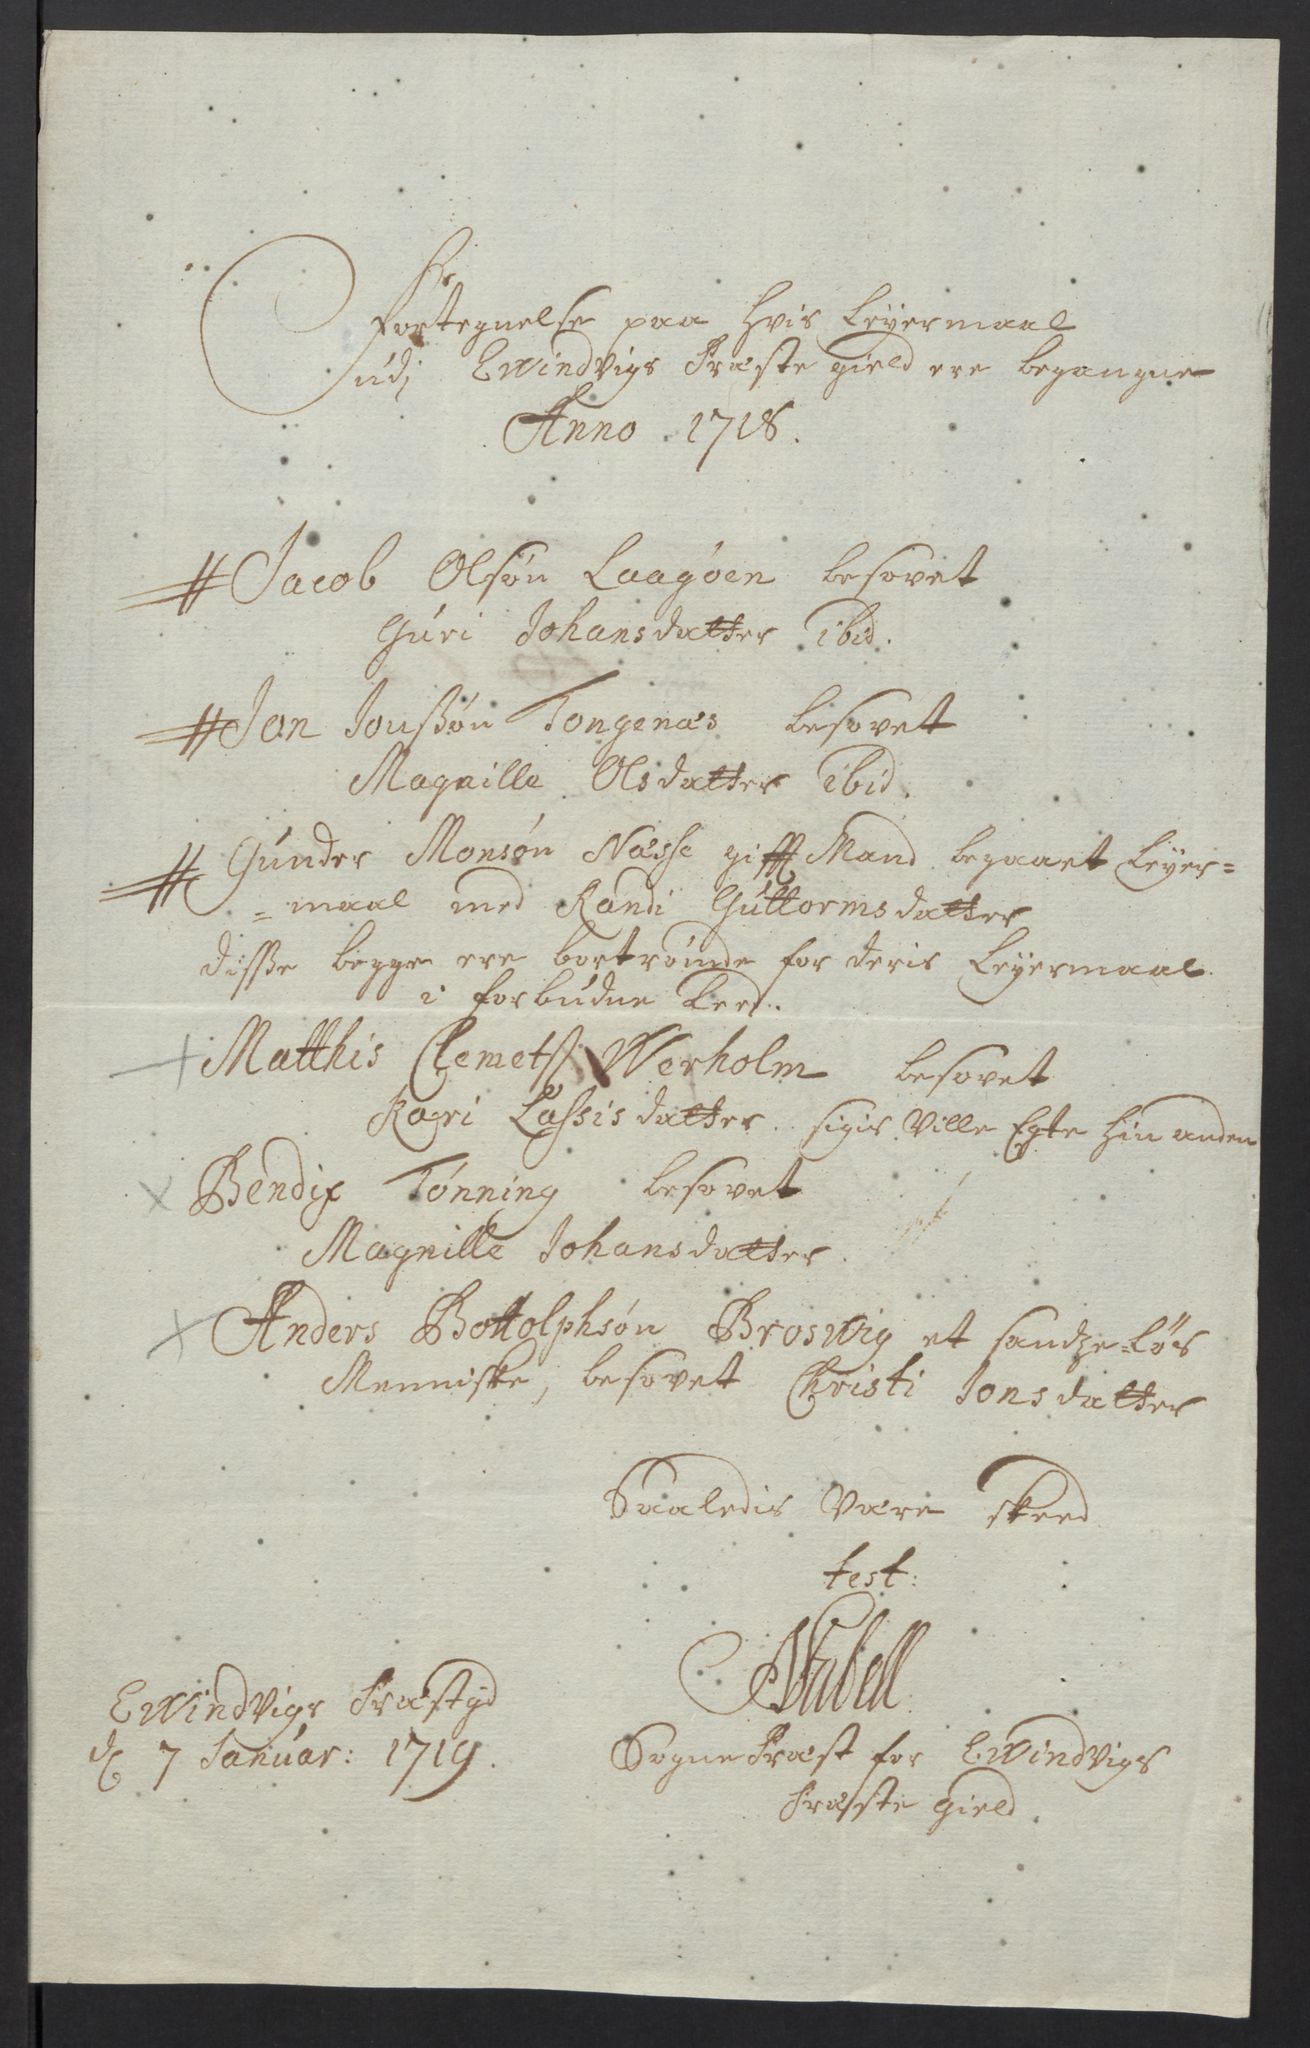 Fortegnelse paa hvis Leyermaal
udj Ewindvigs Præste gield ere begangne
Anno 1718.
Jacob Olsøn Laagøen besovet
Guri Johansdatter ibid.
Jon Jonssøn Tongenæs besovet
Magnille Olsdatter ibid.
Gunder Monsøn Næsse gifft Mand begaaet Leyer=
=maal med Randi Guttormsdatter
disse begge ere bortrømde for deris Leyermaal
i forbudne Leed.
Matthis Clemets: Werholm besovet
Kari Lassisdatter. sigis ville Egte hin anden
Bendix Tønning besovet
Magnille Johansdatter.
Anders Bottolphsøn Broswig et sandze=løs
Menniske, besovet Christi Jonsdatter
Saaledis være skeed
test:
Stabell
Ewindvigs Præstgd
d 7 Januar: 1719.
SognePræst for Ewindvigs
Præste gield.